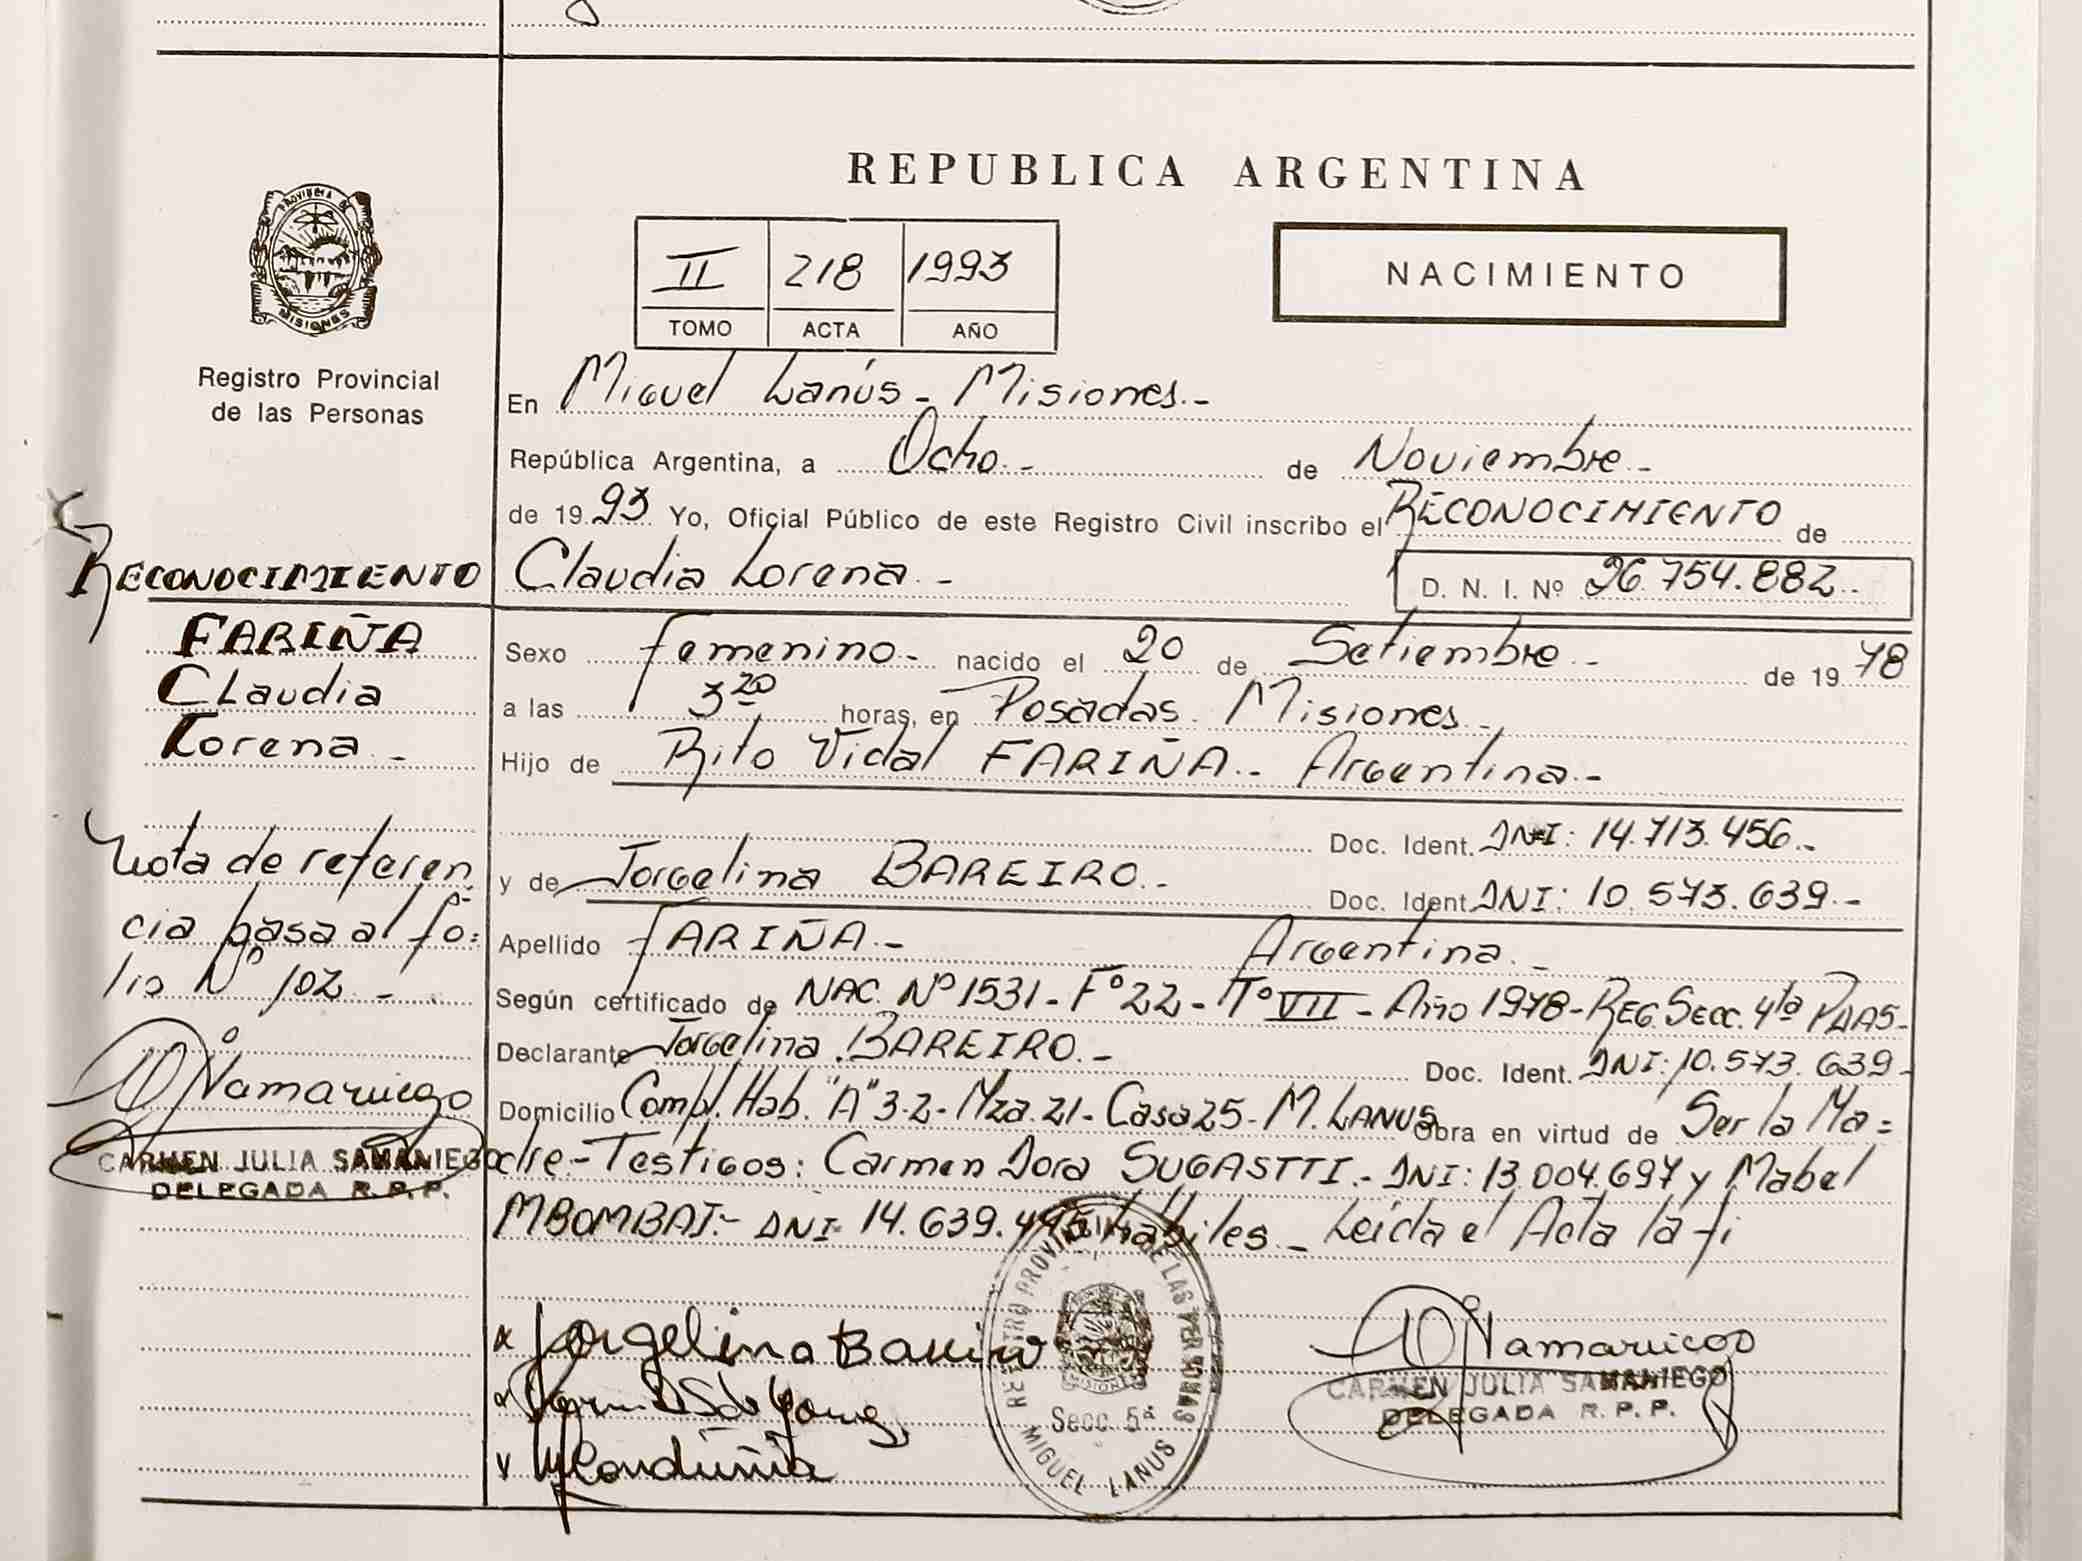 REPUBLICA ARGENTINA
PROVINCIA DE
MISIONES
Registro Provincial
de las Personas
II 218 1993
TOMO ACTA AÑO
NACIMIENTO
En Miguel Lanús - Misiones.-
República Argentina, a Ocho.- de Noviembre.-
de 1993 Yo, Oficial Público de este Registro Civil inscribo el RECONOCIMIENTO de
Claudia Lorena.- D. N. I. Nº 26.754.882.-
Sexo femenino.- nacido el 20 de Setiembre.- de 1978
a las 3 20 horas, en Posadas. Misiones.-
Hijo de Rito Vidal FARIÑA.- Argentina.-
Doc. Ident. DNI: 14.713.456.-
y de Jorgelina BAREIRO.- Doc. Ident. DNI: 10.573.639.-
Apellido FARIÑA.- Argentina.-
Según certificado de NAC. Nº 1531 - Fº 22 - Tº VII - Año 1978 - REG. Secc. 4ta PDAS-
Declarante Jorgelina BAREIRO.- Doc. Ident. DNI: 10.573.639-
Domicilio Compl. Hab. "A" 3-2 - Mza. 21 - Casa 25 - M. LANUS Obra en virtud de Ser la Ma=
dre - Testigos: Carmen Dora SUGASTTI.- DNI: 13.004.697 y Mabel
MBOMBAJ.- DNI: 14.639.495 hábiles - Leída el Acta la fi
RECONOCIMIENTO
FARIÑA
Claudia
Lorena.-
Nota de referen
cia pasa al fo=
lio Nº 102 -
CARMEN JULIA SAMANIEGO
DELEGADA R. P. P.
Jorgelina Bareiro
REGISTRO PROVINCIAL DE LAS PERSONAS
MISIONES
Secc. 5ª
MIGUEL LANUS
CARMEN JULIA SAMANIEGO
DELEGADA R. P. P.